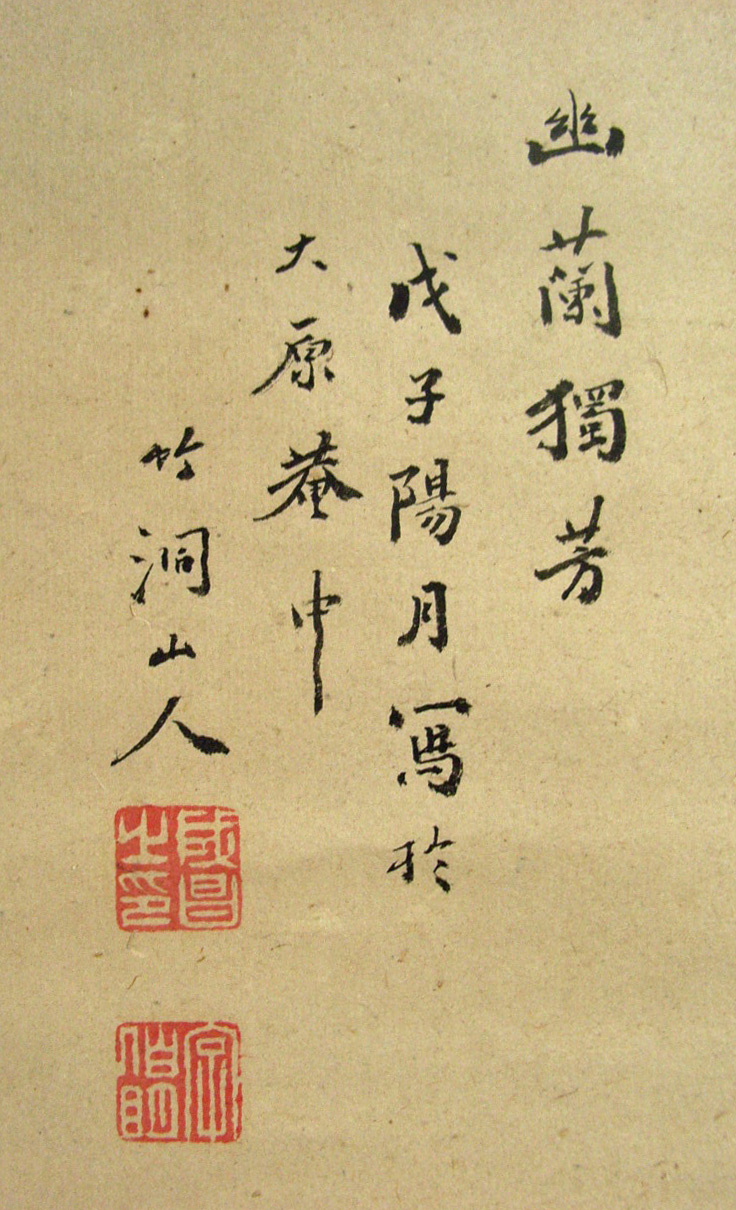 幽蘭獨芳
戊子陽月寫於
大原菴中
竹洞山人
成昌之印